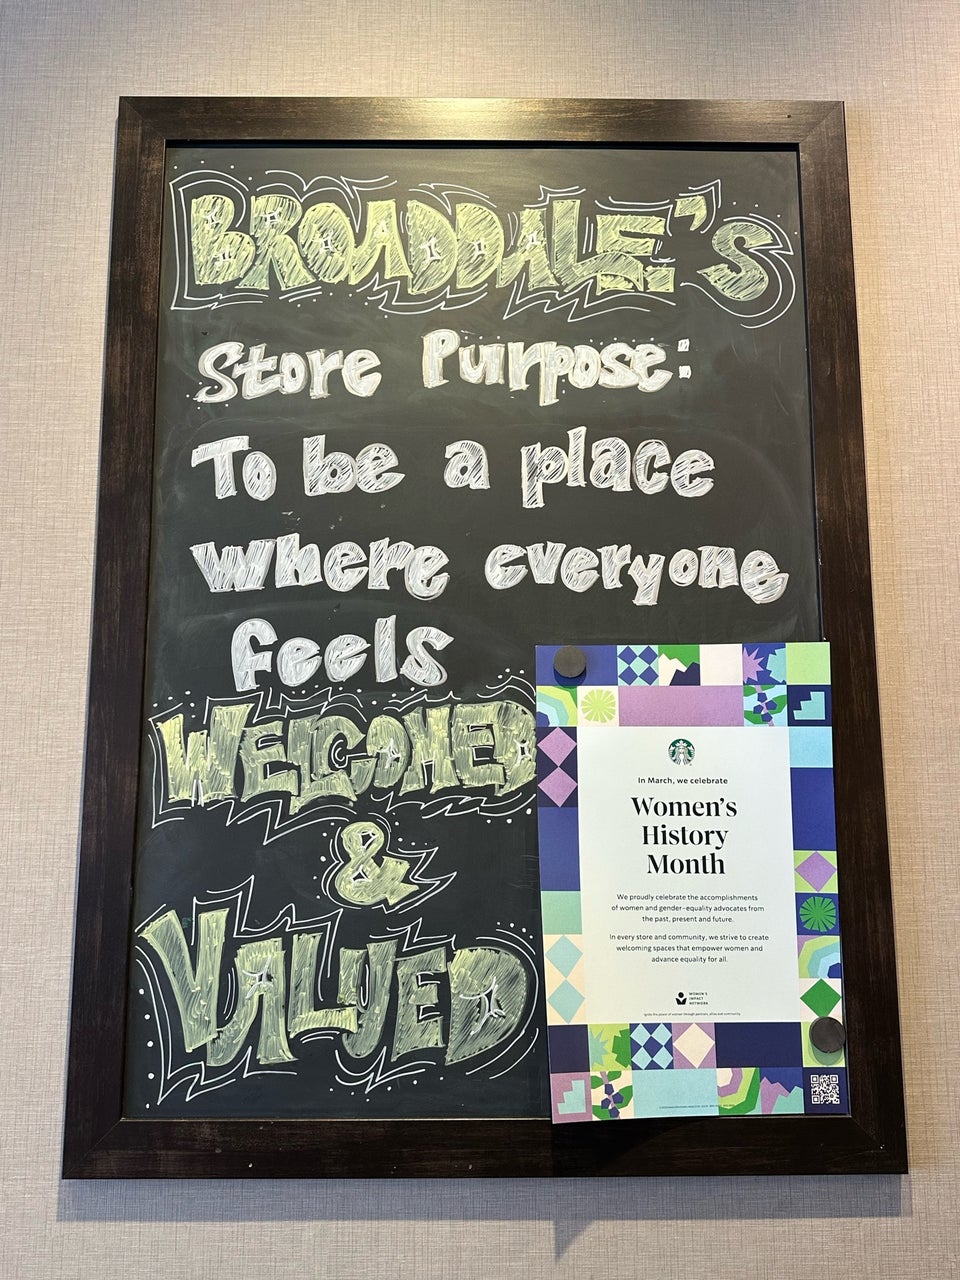 BROADDALE'S
Store Purpose:
To be a place
where everyone
feels
WELCOMED
&
VALUED
In March, we celebrate
Women's
History
Month
We proudly celebrate the accomplishments
of women and gender-equality advocates from
the past, present and future.
In every store and community, we strive to create
welcoming spaces that empower women and
advance equality for all.
WOMEN'S
IMPACT
NETWORK
Ignite the power of women through partners, allies and community.